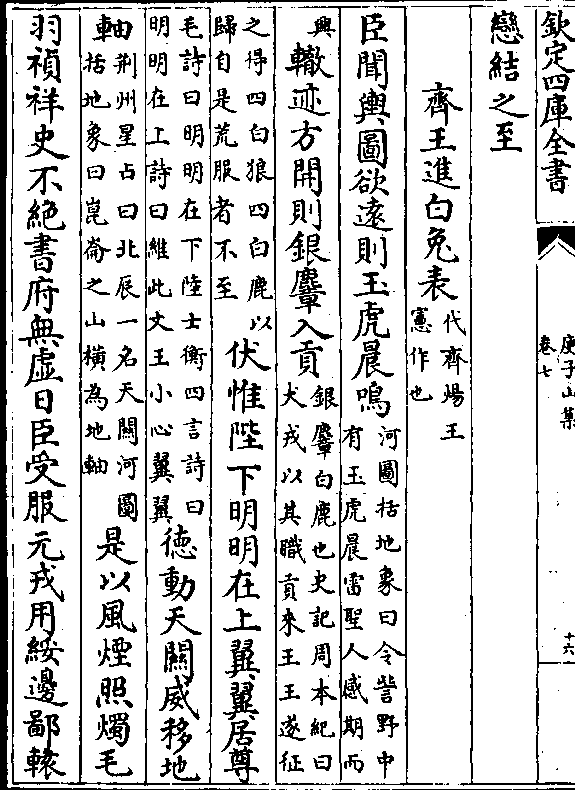 欽定四庫全書
庾子山集
卷七
十六
戀結之至
齊王進白兔表代齊煬王憲作也
臣聞輿圖欲遠則玉虎晨鳴河圖括地象曰令訾野中有玉虎晨雷聖人感期而
興轍迹方開則銀麞入貢銀麞白鹿也史記周本紀曰犬戎以其職貢來王王遂征
之得四白狼四白鹿以歸自是荒服者不至伏惟陛下明明在上翼翼居尊
毛詩曰明明在下陸士衡四言詩曰明明在上詩曰維此文王小心翼翼德動天關威移地
軸荆州星占曰北辰一名天關河圖括地象曰崑崙之山橫為地軸是以風煙照燭毛
羽禎祥史不絶書府無虚日臣受服元戎用綏邊鄙轅